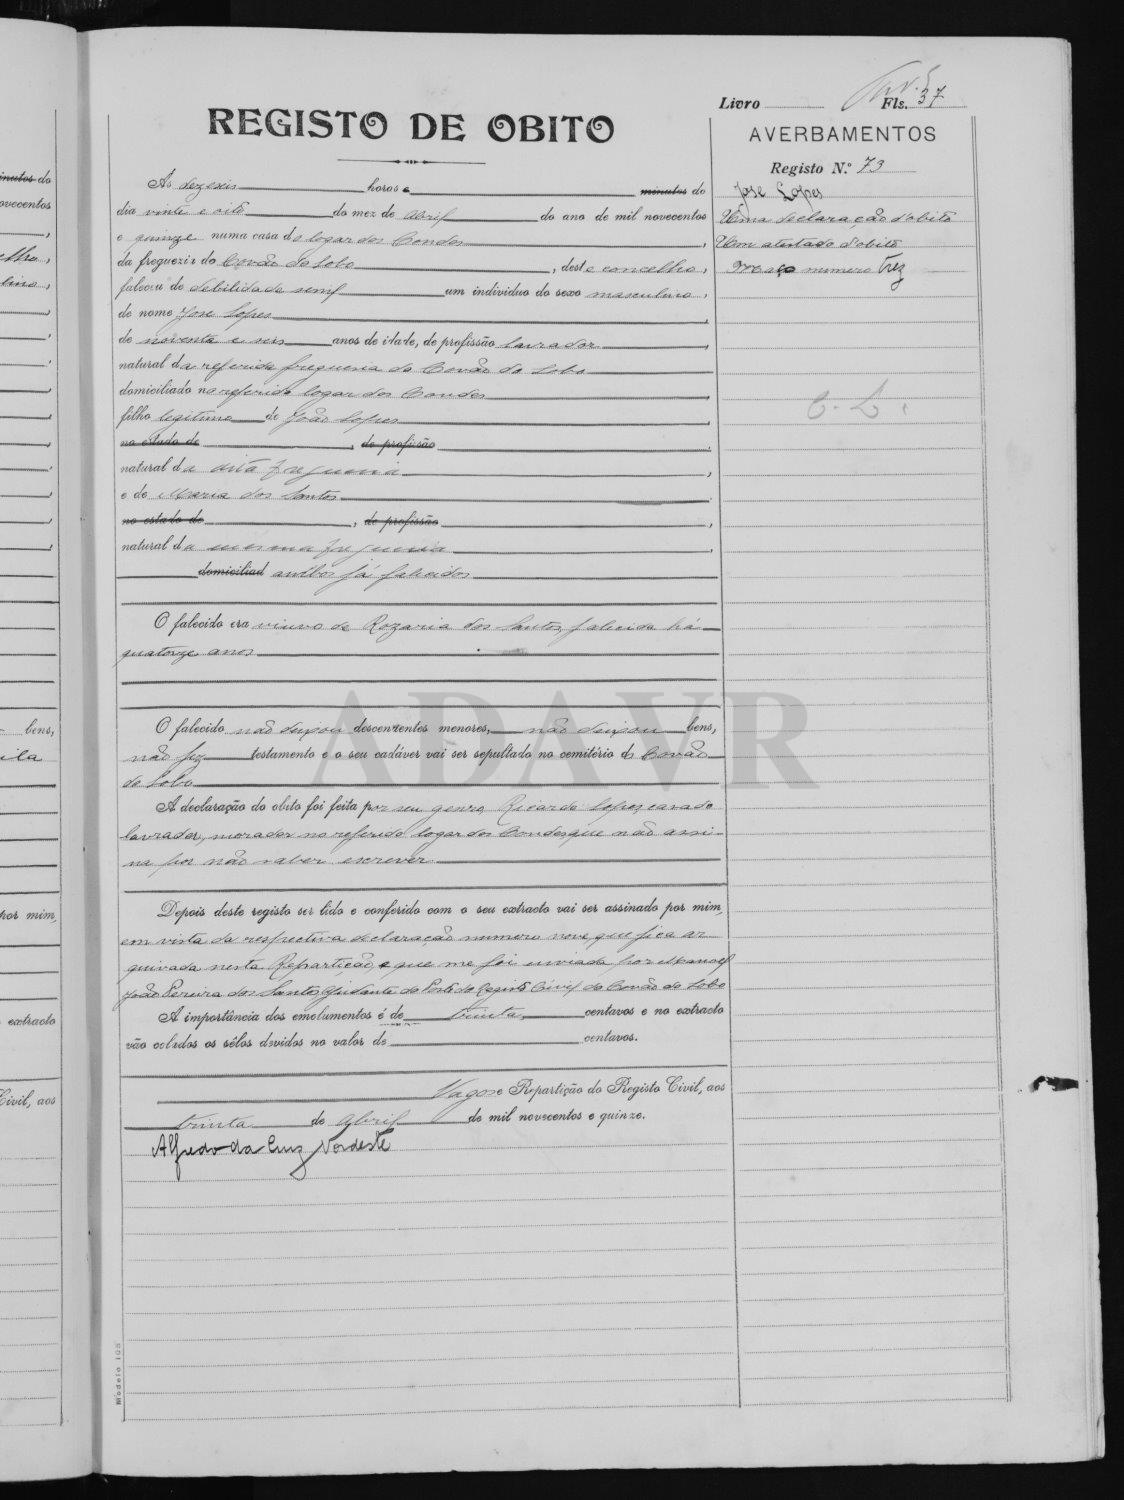 Livro Fls. 37
REGISTO DE OBITO
AVERBAMENTOS
Registo N.º 73
José Lopes
Uma declaração d'obito
Um atestado d'obito
Maço numero trez
C. L.
Ás dezeseis horas e minutos do
dia vinte e oito do mez de Abril do ano de mil novecentos
e quinze numa casa do logar dos Condes,
da freguezia do Covão do Lobo, deste concelho,
faleceu de debilidade senil um individuo do sexo masculino,
de nome José Lopes,
de noventa e seis anos de idade, de profissão lavrador,
natural da referida freguesia do Covão do Lobo
domiciliado no referido logar dos Condes,
filho legitimo de João Lopes,
no estado de, de profissão,
natural da dita freguesia,
e de Maria dos Santos,
no estado de, de profissão,
natural da mesma freguesia,
domiciliad ambos já falecidos
O falecido era viuvo de Rozaria dos Santos, falecida há
quatorze anos
O falecido não deixou descendentes menores, não deixou bens,
não fez testamento e o seu cadáver vai ser sepultado no cemitério do Covão
do Lobo
A declaração do obito foi feita por seu genro, Ricardo Lopes, casado
lavrador, morador no referido logar dos Condes, que não assi-
na por não saber escrever.
Depois deste registo ser lido e conferido com o seu extracto vai ser assinado por mim,
em vista da respectiva declaração numero nove, que fica ar-
quivada nesta Repartição, e que me foi enviada por Manoel
João Pereira dos Santos, Ajudante do Posto do Registo Civil do Covão do Lobo
A importância dos emolumentos é de trinta centavos e no extracto
vão colados os sêlos devidos no valor de centavos.
Vagos e Repartição do Registo Civil, aos
trinta de Abril de mil novecentos e quinze.
Alfredo da Cruz Nordeste
Modelo 105
ADAVR
minutos do
novecentos
bens,
por mim,
extracto
Civil, aos